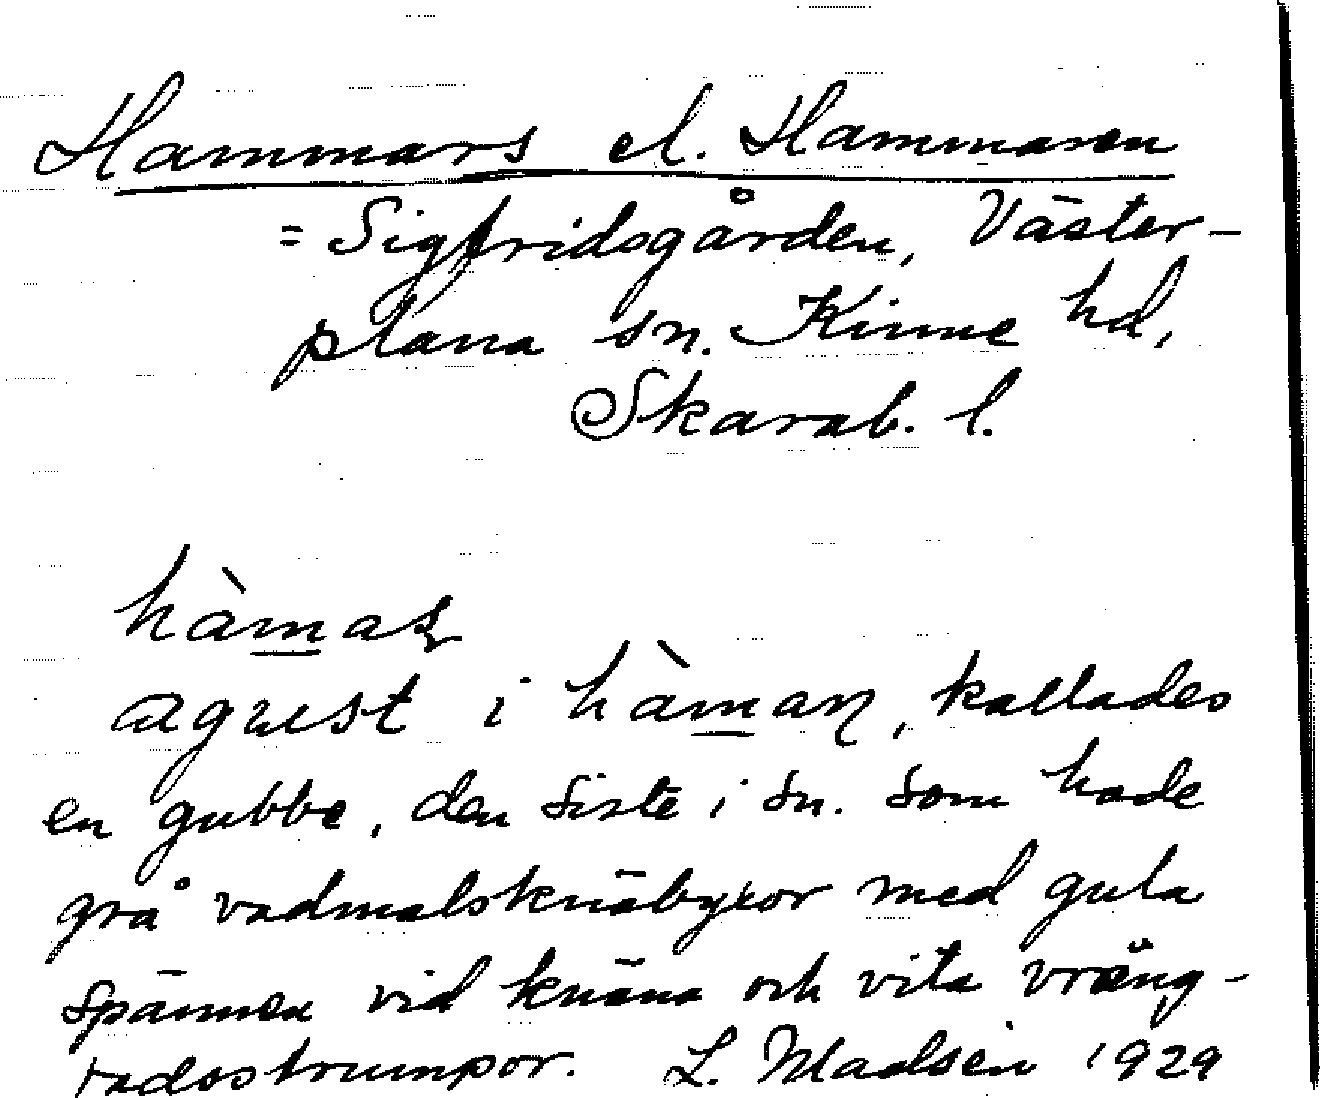 Hammars el. Hammaren
= Sigfridsgården, Väster-
plana sn. Kinne hd,
Skarab. l.
hàmas
agust i hàman, kallades
en gubbe, den siste i sn. som hade
grå vadmalsknäbyxor med gula
spännen vid knäna och vita vräng-
tadostrumpor. L. Madsén 1929